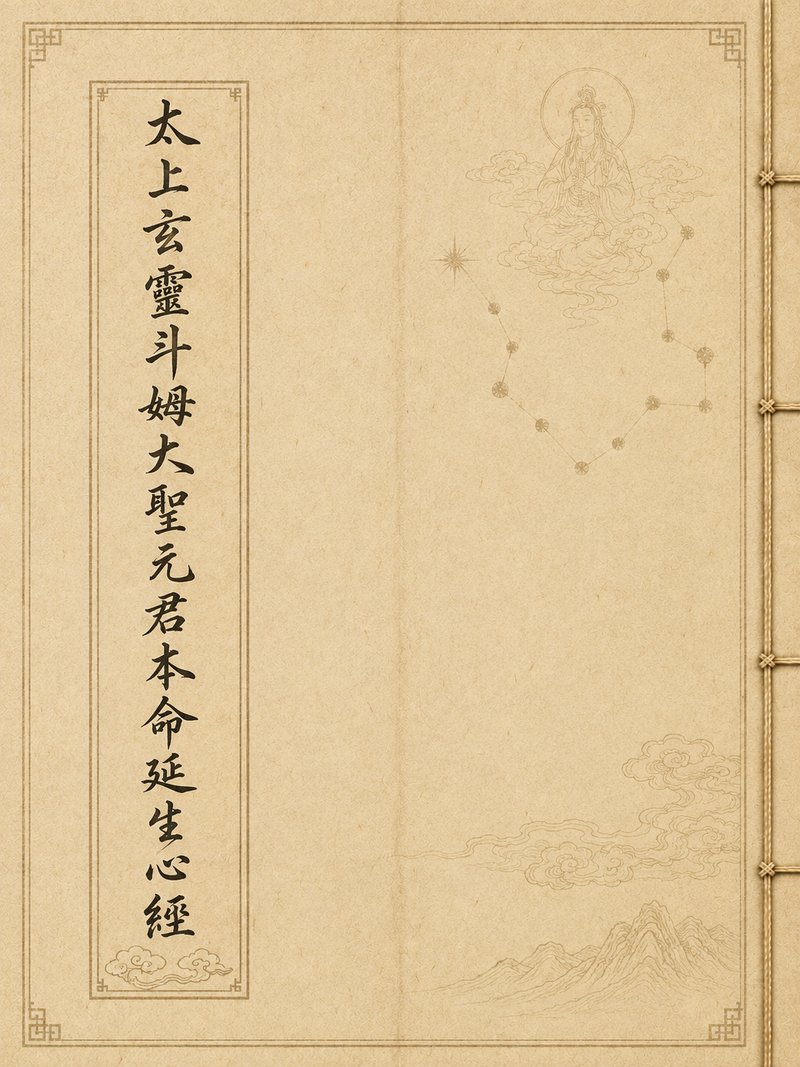 太上玄靈斗姆大聖元君本命延生心經